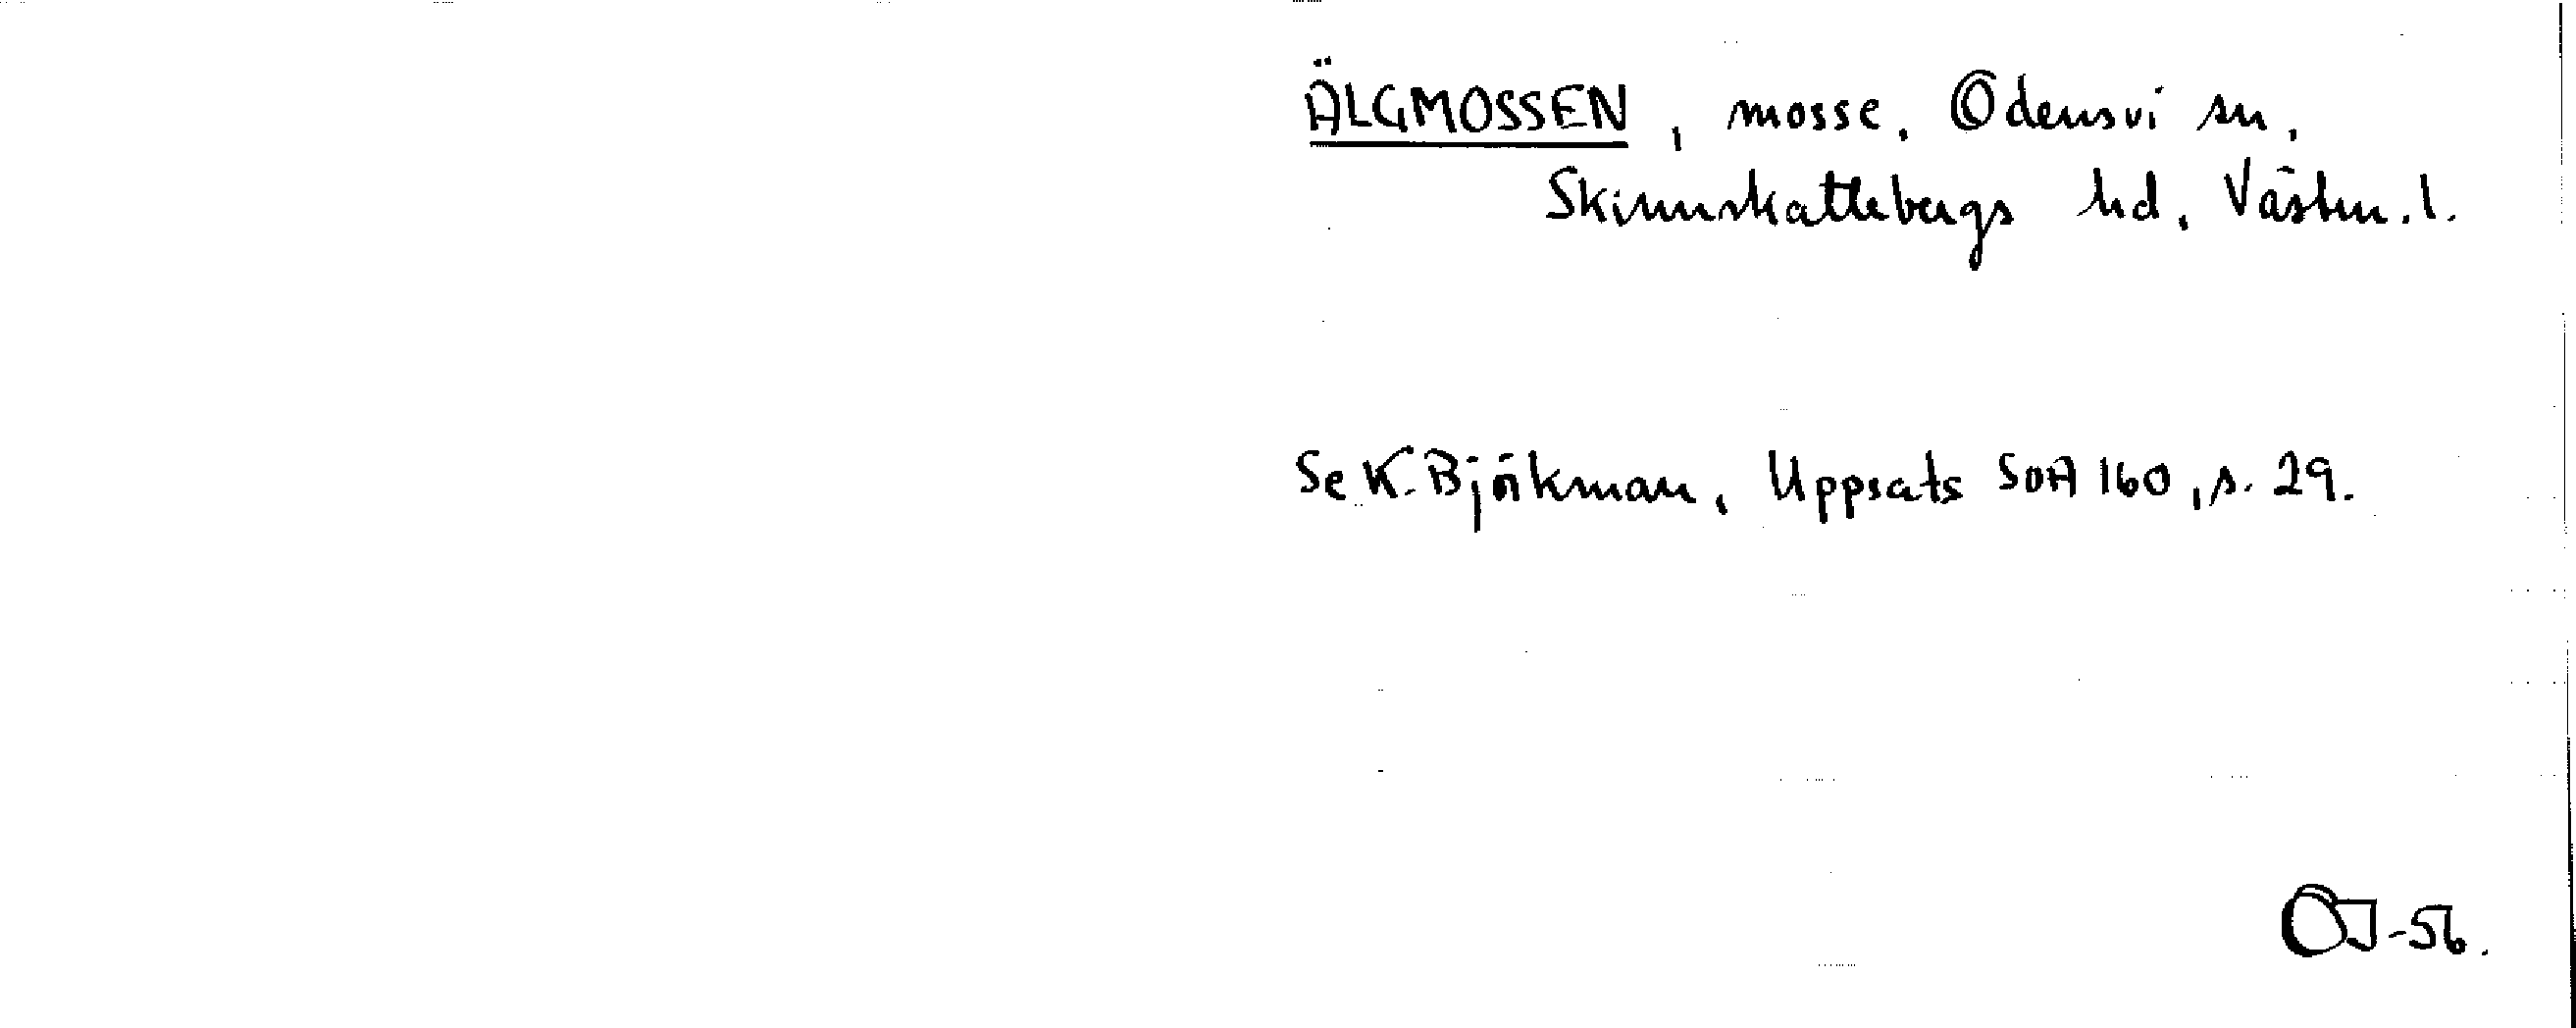 ÄLGMOSSEN, mosse. Odensvi sn.
Skinnskattebergs hd, Västm.l.
Se K. Björkman, Uppsats SOA 160, s. 29.
OJ-56.